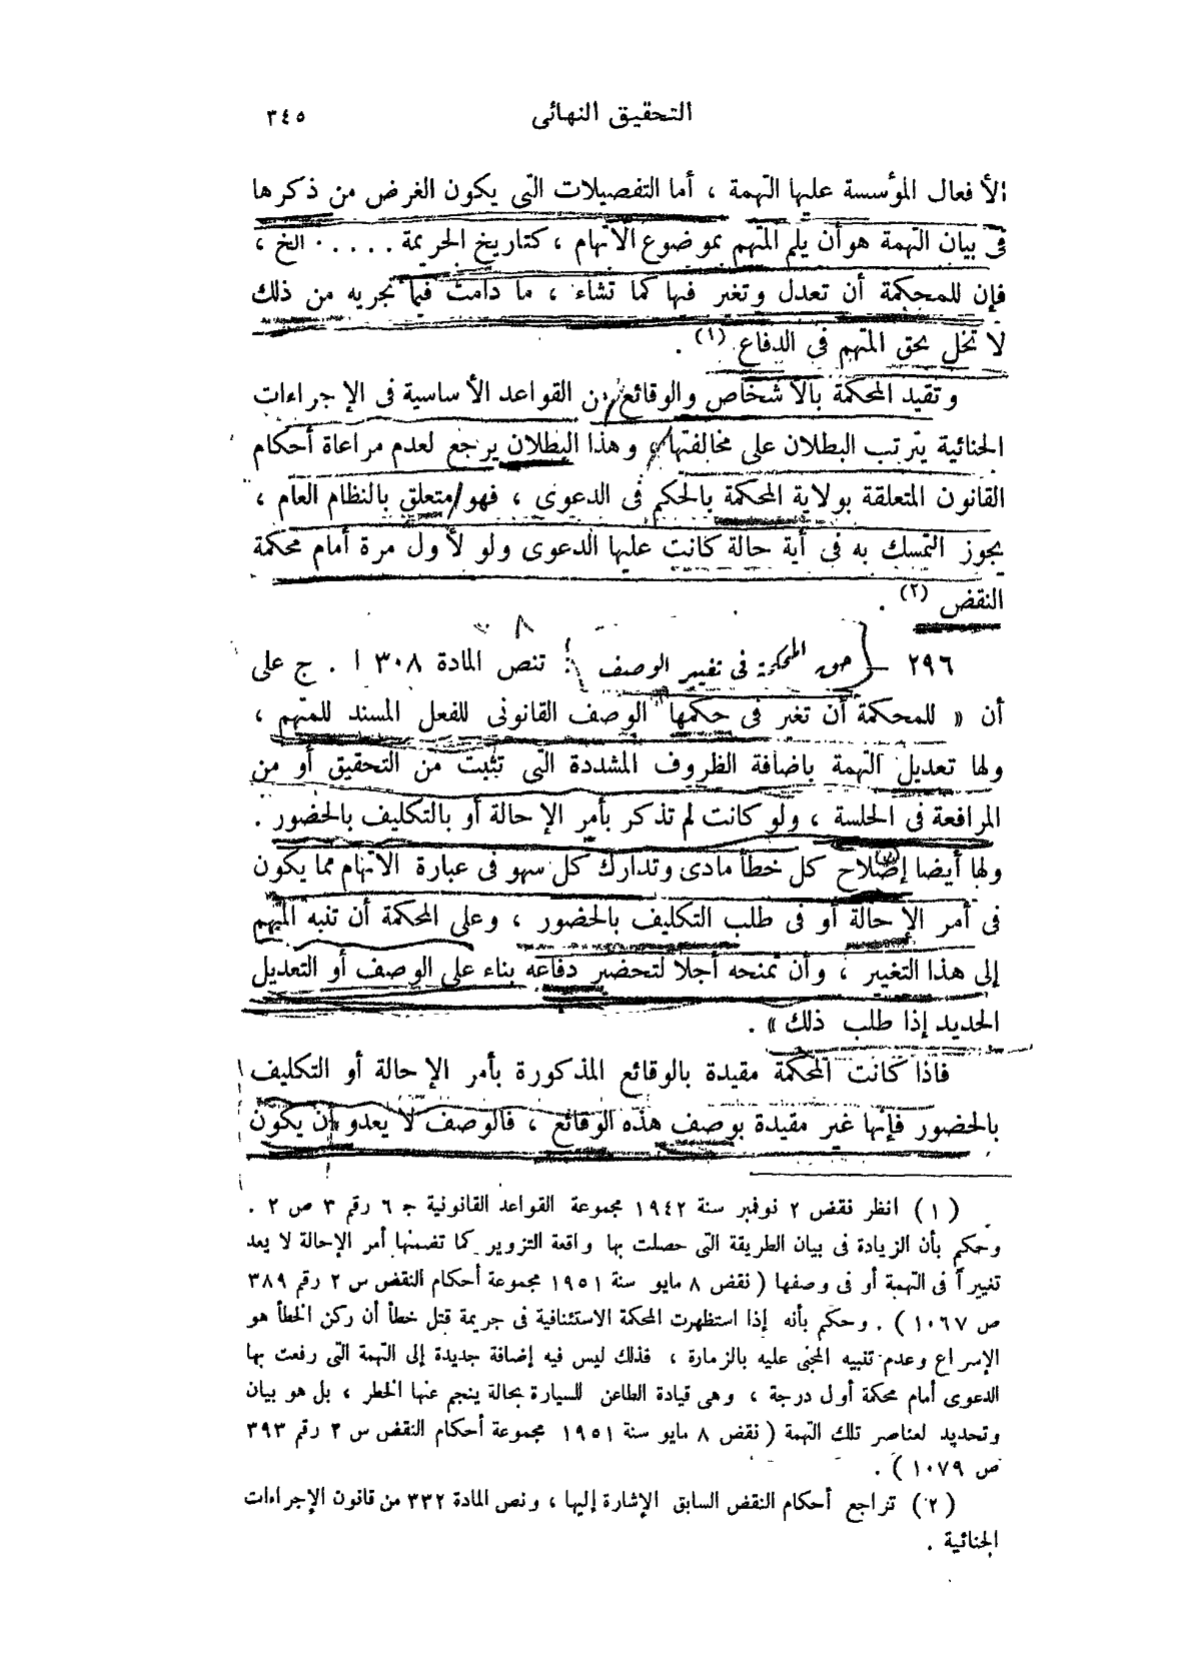 التحقيق النهائى ٣٤٥
الأفعال المؤسسة عليها التهمة ، أما التفصيلات التى يكون الغرض من ذكرها
فى بيان التهمة هو أن يلم المتهم بموضوع الاتهام ، كتاريخ الجريمة ..... الخ ،
فإن للمحكمة أن تعدل وتغير فيها كما تشاء ، ما دامت فيما تجريه من ذلك
لا تخل بحق المتهم فى الدفاع (١) .
وتقيد المحكمة بالأشخاص والوقائع من القواعد الأساسية فى الإجراءات
الجنائية يترتب البطلان على مخالفتها ، وهذا البطلان يرجع لعدم مراعاة أحكام
القانون المتعلقة بولاية المحكمة بالحكم فى الدعوى ، فهو متعلق بالنظام العام ،
يجوز التمسك به فى أية حالة كانت عليها الدعوى ولو لأول مرة أمام محكمة
النقض (٢) .
٢٩٦ – حق المحكمة فى تغيير الوصف : تنص المادة ٣٠٨ ا . ج على
أن « للمحكمة أن تغير فى حكمها الوصف القانونى للفعل المسند للمتهم ،
ولها تعديل التهمة باضافة الظروف المشددة التى تثبت من التحقيق أو من
المرافعة فى الجلسة ، ولو كانت لم تذكر بأمر الإحالة أو بالتكليف بالحضور .
ولها أيضا إصلاح كل خطأ مادى وتدارك كل سهو فى عبارة الاتهام مما يكون
فى أمر الإحالة أو فى طلب التكليف بالحضور ، وعلى المحكمة أن تنبه المتهم
إلى هذا التغيير ، وأن تمنحه أجلا لتحضير دفاعه بناء على الوصف أو التعديل
الجديد إذا طلب ذلك » .
فاذا كانت المحكمة مقيدة بالوقائع المذكورة بأمر الإحالة أو التكليف
بالحضور فإنها غير مقيدة بوصف هذه الوقائع ، فالوصف لا يعدو أن يكون
(١) انظر نقض ٢ نوفمبر سنة ١٩٤٢ مجموعة القواعد القانونية جـ ٦ رقم ٣ ص ٢ .
وحكم بأن الزيادة فى بيان الطريقة التى حصلت بها واقعة التزوير كما تضمنها أمر الإحالة لا يعد
تغييراً فى التهمة أو فى وصفها ( نقض ٨ مايو سنة ١٩٥١ مجموعة أحكام النقض س ٢ رقم ٣٨٩
ص ١٠٦٧ ) . وحكم بأنه إذا استظهرت المحكمة الاستئنافية فى جريمة قتل خطأ أن ركن الخطأ هو
الإسراع وعدم تنبيه المجنى عليه بالزمارة ، فذلك ليس فيه إضافة جديدة إلى التهمة التى رفعت بها
الدعوى أمام محكمة أول درجة ، وهى قيادة الطاعن للسيارة بحالة ينجم عنها الخطر ، بل هو بيان
وتحديد لعناصر تلك التهمة ( نقض ٨ مايو سنة ١٩٥١ مجموعة أحكام النقض س ٢ رقم ٣٩٣
ص ١٠٧٩ ) .
(٢) تراجع أحكام النقض السابق الإشارة إليها ، ونص المادة ٣٣٢ من قانون الإجراءات
الجنائية .